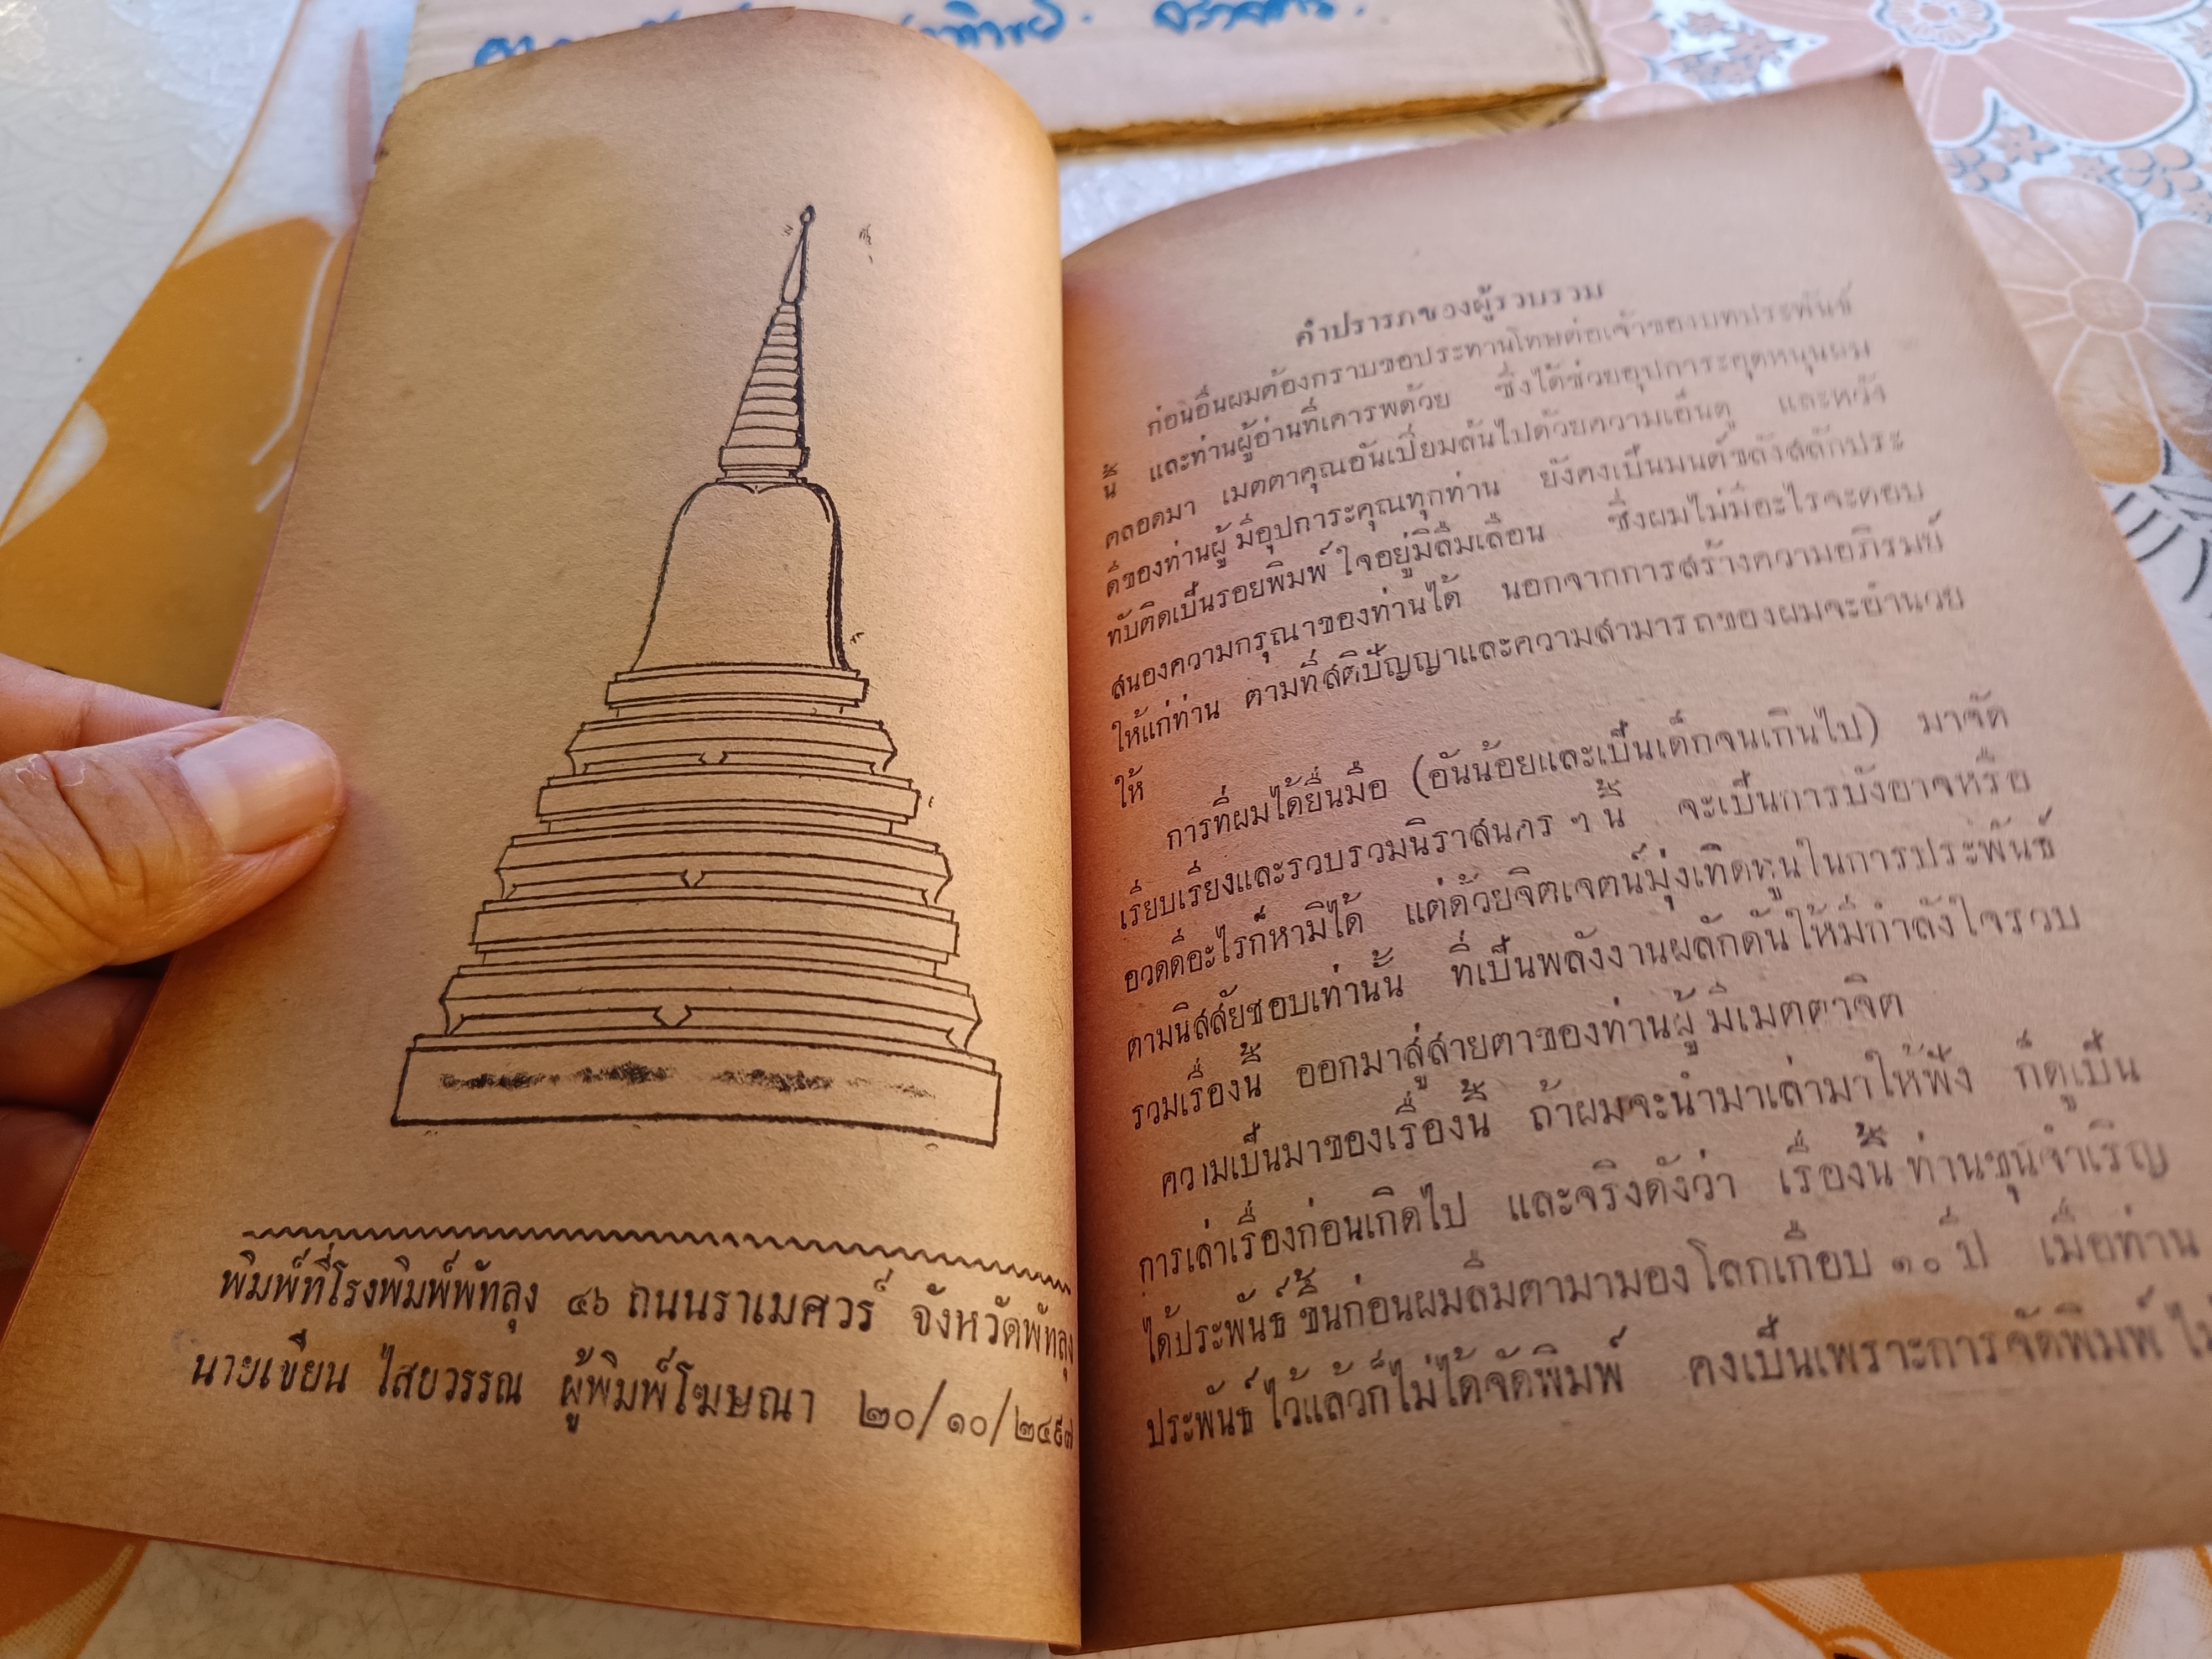 พิมพ์ที่โรงพิมพ์พัทลุง ๔๖ ถนนราเมศวร์ จังหวัดพัทลุง
นายเขียน ไสยวรรณ ผู้พิมพ์โฆษณา ๒๐/๑๐/๒๔๙๗
คำปรารภของผู้รวบรวม
ก่อนอื่นผมต้องกราบขอประทานโทษต่อเจ้าของบทประพันธ์
นี้ และท่านผู้อ่านที่เคารพด้วย ซึ่งได้ช่วยอุปการะอุดหนุนผม
ตลอดมา เมตตาคุณอันเปี่ยมล้นไปด้วยความเอ็นดู และหวัง
ดีของท่านผู้มีอุปการะคุณทุกท่าน ยังคงเป็นมนต์ขลังสลักประ
ทับติดเป็นรอยพิมพ์ใจอยู่มิลืมเลือน ซึ่งผมไม่มีอะไรจะตอบ
สนองความกรุณาของท่านได้ นอกจากการสร้างความอภิรมย์
ให้แก่ท่าน ตามที่สติปัญญาและความสามารถของผมจะอำนวย
ให้
การที่ผมได้ยื่นมือ (อันน้อยและเป็นเด็กจนเกินไป) มาจัด
เรียบเรียงและรวบรวมนิราสนคร ๆ นี้ จะเป็นการบังอาจหรือ
อวดดีอะไรก็หามิได้ แต่ด้วยจิตเจตน์มุ่งเทิดทูนในการประพันธ์
ตามนิสสัยชอบเท่านั้น ที่เป็นพลังงานผลักดันให้มีกำลังใจรวบ
รวมเรื่องนี้ ออกมาสู่สายตาของท่านผู้มีเมตตาจิต
ความเป็นมาของเรื่องนี้ ถ้าผมจะนำมาเล่ามาให้ฟัง ก็ดูเป็น
การเล่าเรื่องก่อนเกิดไป และจริงดังว่า เรื่องนี้ท่านขุนจำเริญ
ได้ประพันธ์ขึ้นก่อนผมลืมตามามองโลกเกือบ ๑๐ ปี เมื่อท่าน
ประพันธ์ไว้แล้วก็ไม่ได้จัดพิมพ์ คงเป็นเพราะการจัดพิมพ์